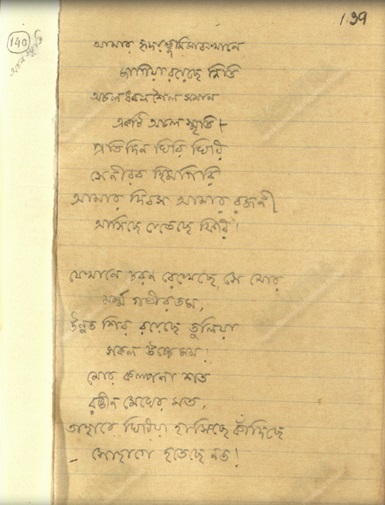 139
140
অচল স্মৃতি
আমার হৃদয়ভূমি মাঝখানে
জাগিয়া রয়েছে নিতি
অচল ধবল শৈল সমান
একটি অচল স্মৃতি।
প্রতিদিন ঘিরি ঘিরি
সে নীরব হিমগিরি
আমার দিবস আমার রজনী
আসিছে যেতেছে ফিরি!
যেখানে চরণ রেখেছে সে মোর
মর্ম্ম গভীরতম,
উন্নত শির রয়েছে তুলিয়া
সকল উচ্চে মম!
মোর কল্পনা শত
রঙীন মেঘের মত,
তাহারে ঘিরিয়া হাসিছে কাঁদিছে
সোহাগে হতেছে নত!